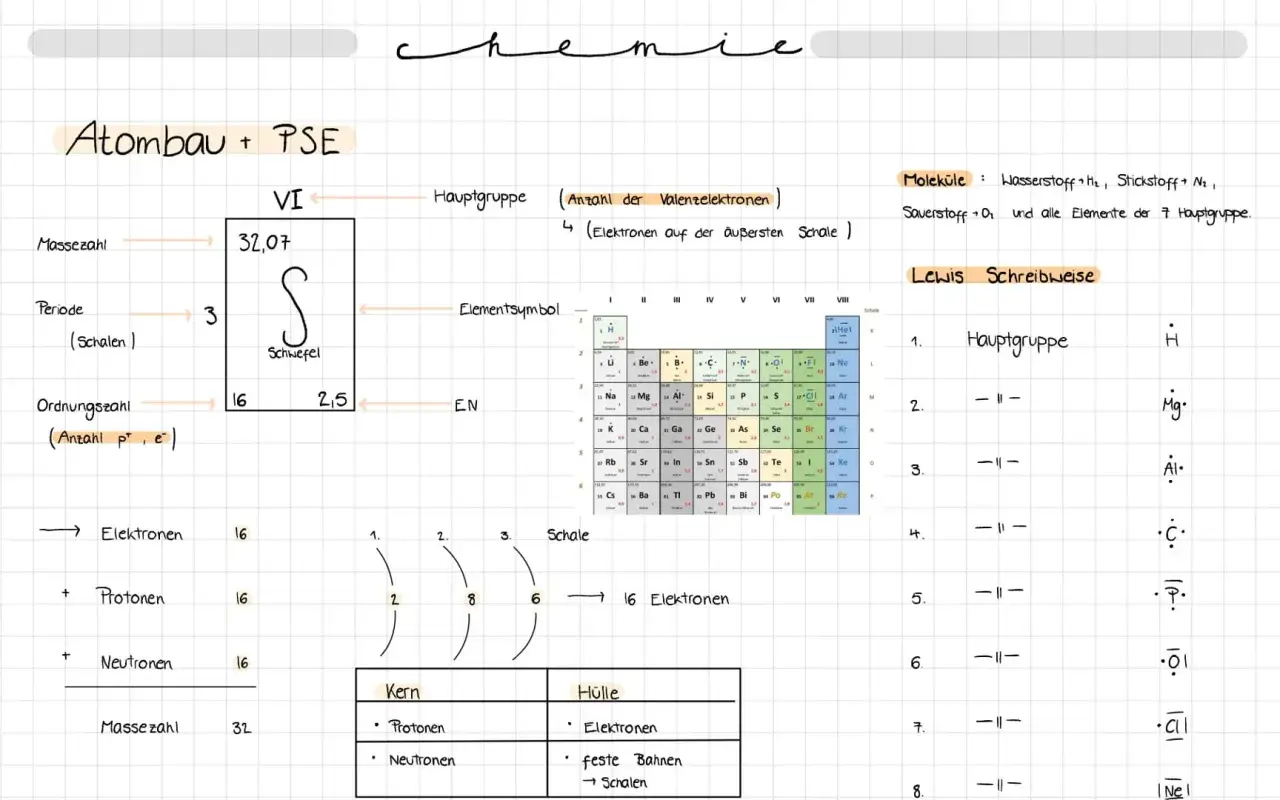 chemie
Atombau + PSE
VI
Hauptgruppe (Anzahl der Valenzelektronen)
↳ (Elektronen auf der äußersten Schale)
Massezahl
32,07
Periode
(Schalen)
3
S
Schwefel
Elementsymbol
Ordnungszahl
(Anzahl p⁺, e⁻)
16 2,5
EN
→ Elektronen 16
+ Protonen 16
+ Neutronen 16
Massezahl 32
1. 2. 3. Schale
2 8 6 → 16 Elektronen
Kern Hülle
• Protonen • Elektronen
• Neutronen • feste Bahnen
→ Schalen
I II III IV V VI VII VIII
H He
Li Be B C N O F Ne
Na Mg Al Si P S Cl Ar
K Ca Ga Ge As Se Br Kr
Rb Sr In Sn Sb Te I Xe
Cs Ba Tl Pb Bi Po At Rn
Moleküle : Wasserstoff → H₂, Stickstoff → N₂,
Sauerstoff → O₂ und alle Elemente der 7 Hauptgruppe.
Lewis Schreibweise
1. Hauptgruppe H
2. — " — Mg
3. — " — Al
4. — " — C
5. — " — P
6. — " — O
7. — " — Cl
8. — " — Ne